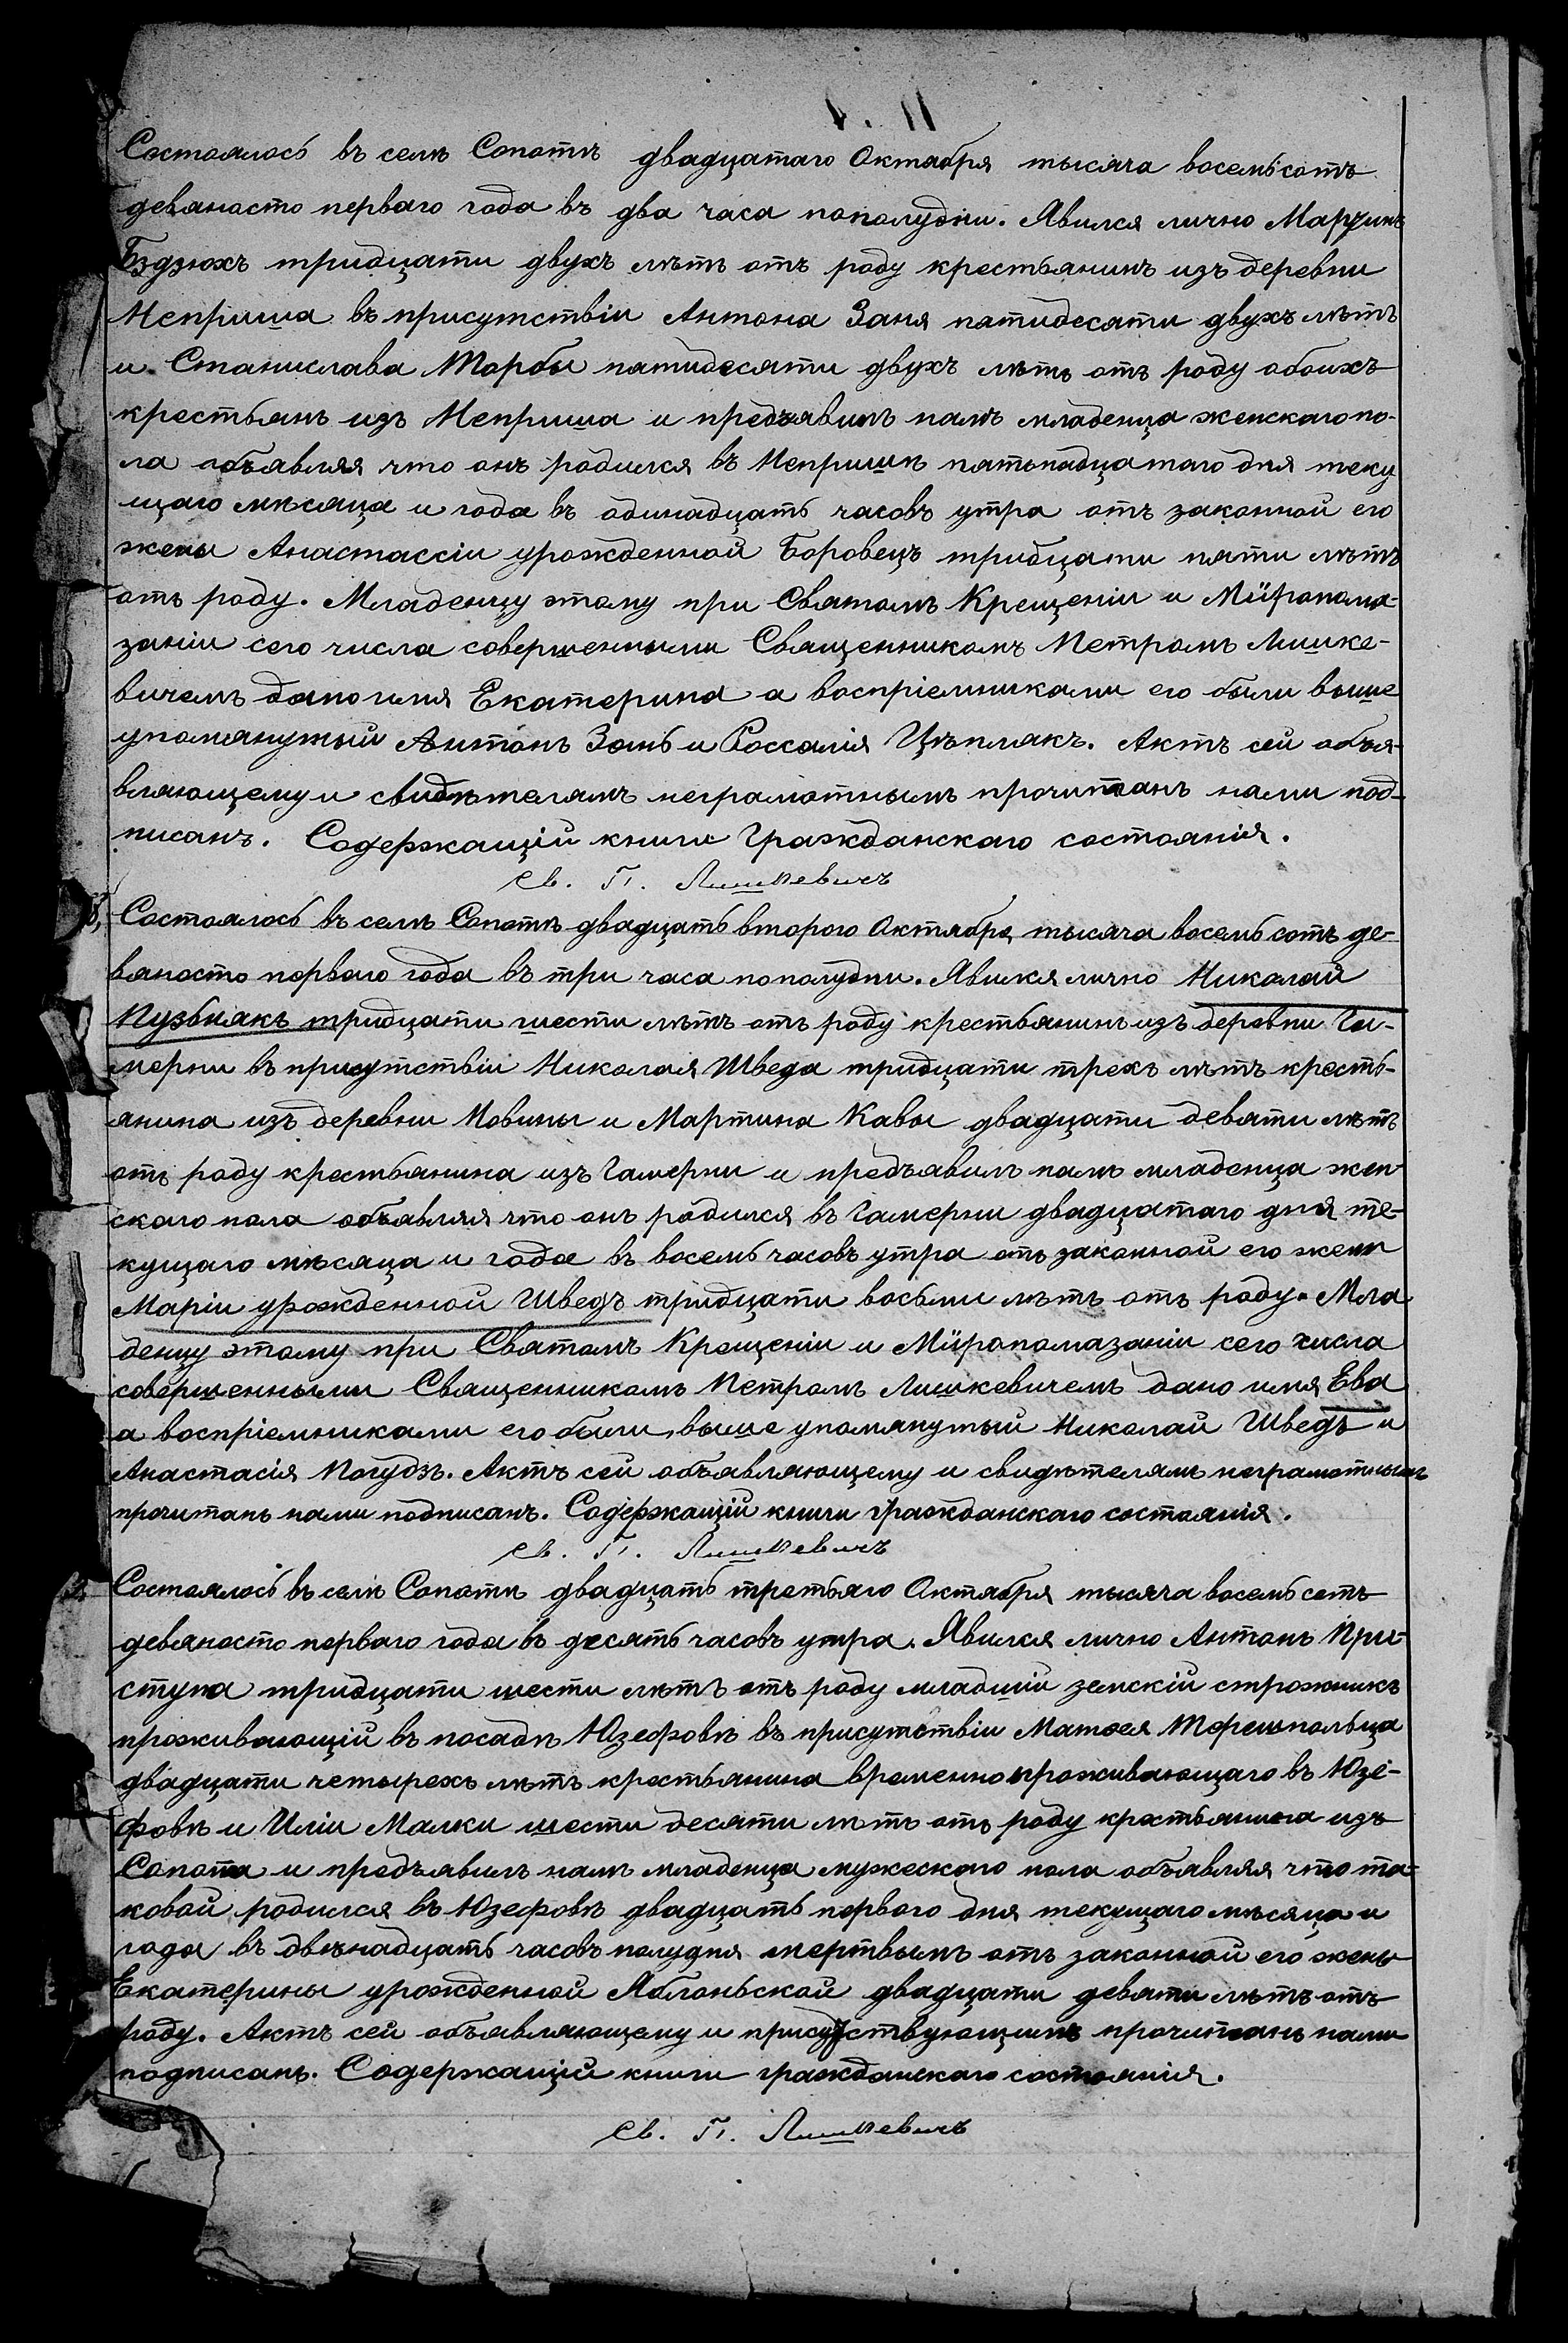 Состоялось въ селѣ Сопотѣ двадцатаго Октября тысяча восемьсотъ
девяносто перваго года въ два часа пополудни. Явился лично Марцинъ
Бздзюхъ тридцати двухъ лѣтъ отъ роду крестьянинъ изъ деревни
Неприша въ присутствіи Антона Заня пятидесяти двухъ лѣтъ
и Станислава Торбы пятидесяти двухъ лѣтъ отъ роду обоихъ
крестьянъ изъ Неприша и предъявилъ намъ младенца женскаго по-
ла объявляя что онъ родился въ Непришѣ пятьнадцатаго дня теку
щаго мѣсяца и года въ одинадцать часовъ утра отъ законной его
жены Анастассіи урожденной Боровецъ тридцати пяти лѣтъ
отъ роду. Младенцу этому при Святомъ Крещеніи и Мѵропома-
заніи сего числа совершенными Священникомъ Петромъ Лишке-
вичемъ дано имя Екатерина а воспріемниками его были выше
упомянутый Антонъ Зань и Россалія Цѣплякъ. Актъ сей объя-
вляющему и свидѣтелямъ неграмотнымъ прочитанъ нами под-
писанъ. Содержащій книги гражданскаго состоянія.
Св. П. Лишкевичъ
Состоялось въ селѣ Сопотѣ двадцать второго Октября тысяча восемь сотъ де-
вяносто перваго года въ три часа пополудни. Явился лично Николай
Пузьнякъ тридцати шести лѣтъ отъ роду крестьянинъ изъ деревни Га-
мерни въ присутствіи Николая Шведа тридцати трехъ лѣтъ кресть-
янина изъ деревни Новины и Мартина Кавы двадцати девяти лѣтъ
отъ роду крестьянина изъ Гамерни и предъявилъ намъ младенца жен-
скаго пола объявляя что онъ родился въ Гамерни двадцатаго дня те-
кущаго мѣсяца и года въ восемь часовъ утра отъ законной его жены
Маріи урожденной Шведъ тридцати восьми лѣтъ отъ роду. Мла
денцу этому при Святомъ Крещеніи и Мѵропомазаніи сего числа
совершенными Священникомъ Петромъ Лишкевичемъ дано имя Ева
а воспріемниками его были выше упомянутый Николай Шведъ и
Анастасія Погудзъ. Актъ сей объявляющему и свидѣтелямъ неграмотнымъ
прочитанъ нами подписанъ. Содержащій книги гражданскаго состоянія.
Св. П. Лишкевичъ
Состоялось въ селѣ Сопотѣ двадцать третьяго Октября тысяча восемь сотъ
девяносто перваго года въ десять часовъ утра. Явился лично Антонъ При-
ступа тридцати шести лѣтъ отъ роду младшій земскій стражникъ
проживающій въ посадѣ Юзефовѣ въ присутствіи Матѳея
двадцати четырехъ лѣтъ крестьянина временно проживающаго въ Юзе-
фовѣ и Иліи Малки шести десяти лѣтъ отъ роду крестьянина изъ
Сопота и предъявилъ намъ младенца мужескаго пола объявляя что та-
ковой родился въ Юзефовѣ двадцать перваго дня текущаго мѣсяца и
года въ двѣнадцать часовъ полудня мертвымъ отъ законной его жены
Екатерины урожденной Яблоньской двадцати девяти лѣтъ отъ
роду. Актъ сей объявляющему и присутствующимъ прочитанъ нами
подписанъ. Содержащій книги гражданскаго состоянія.
Св. П. Лишкевичъ